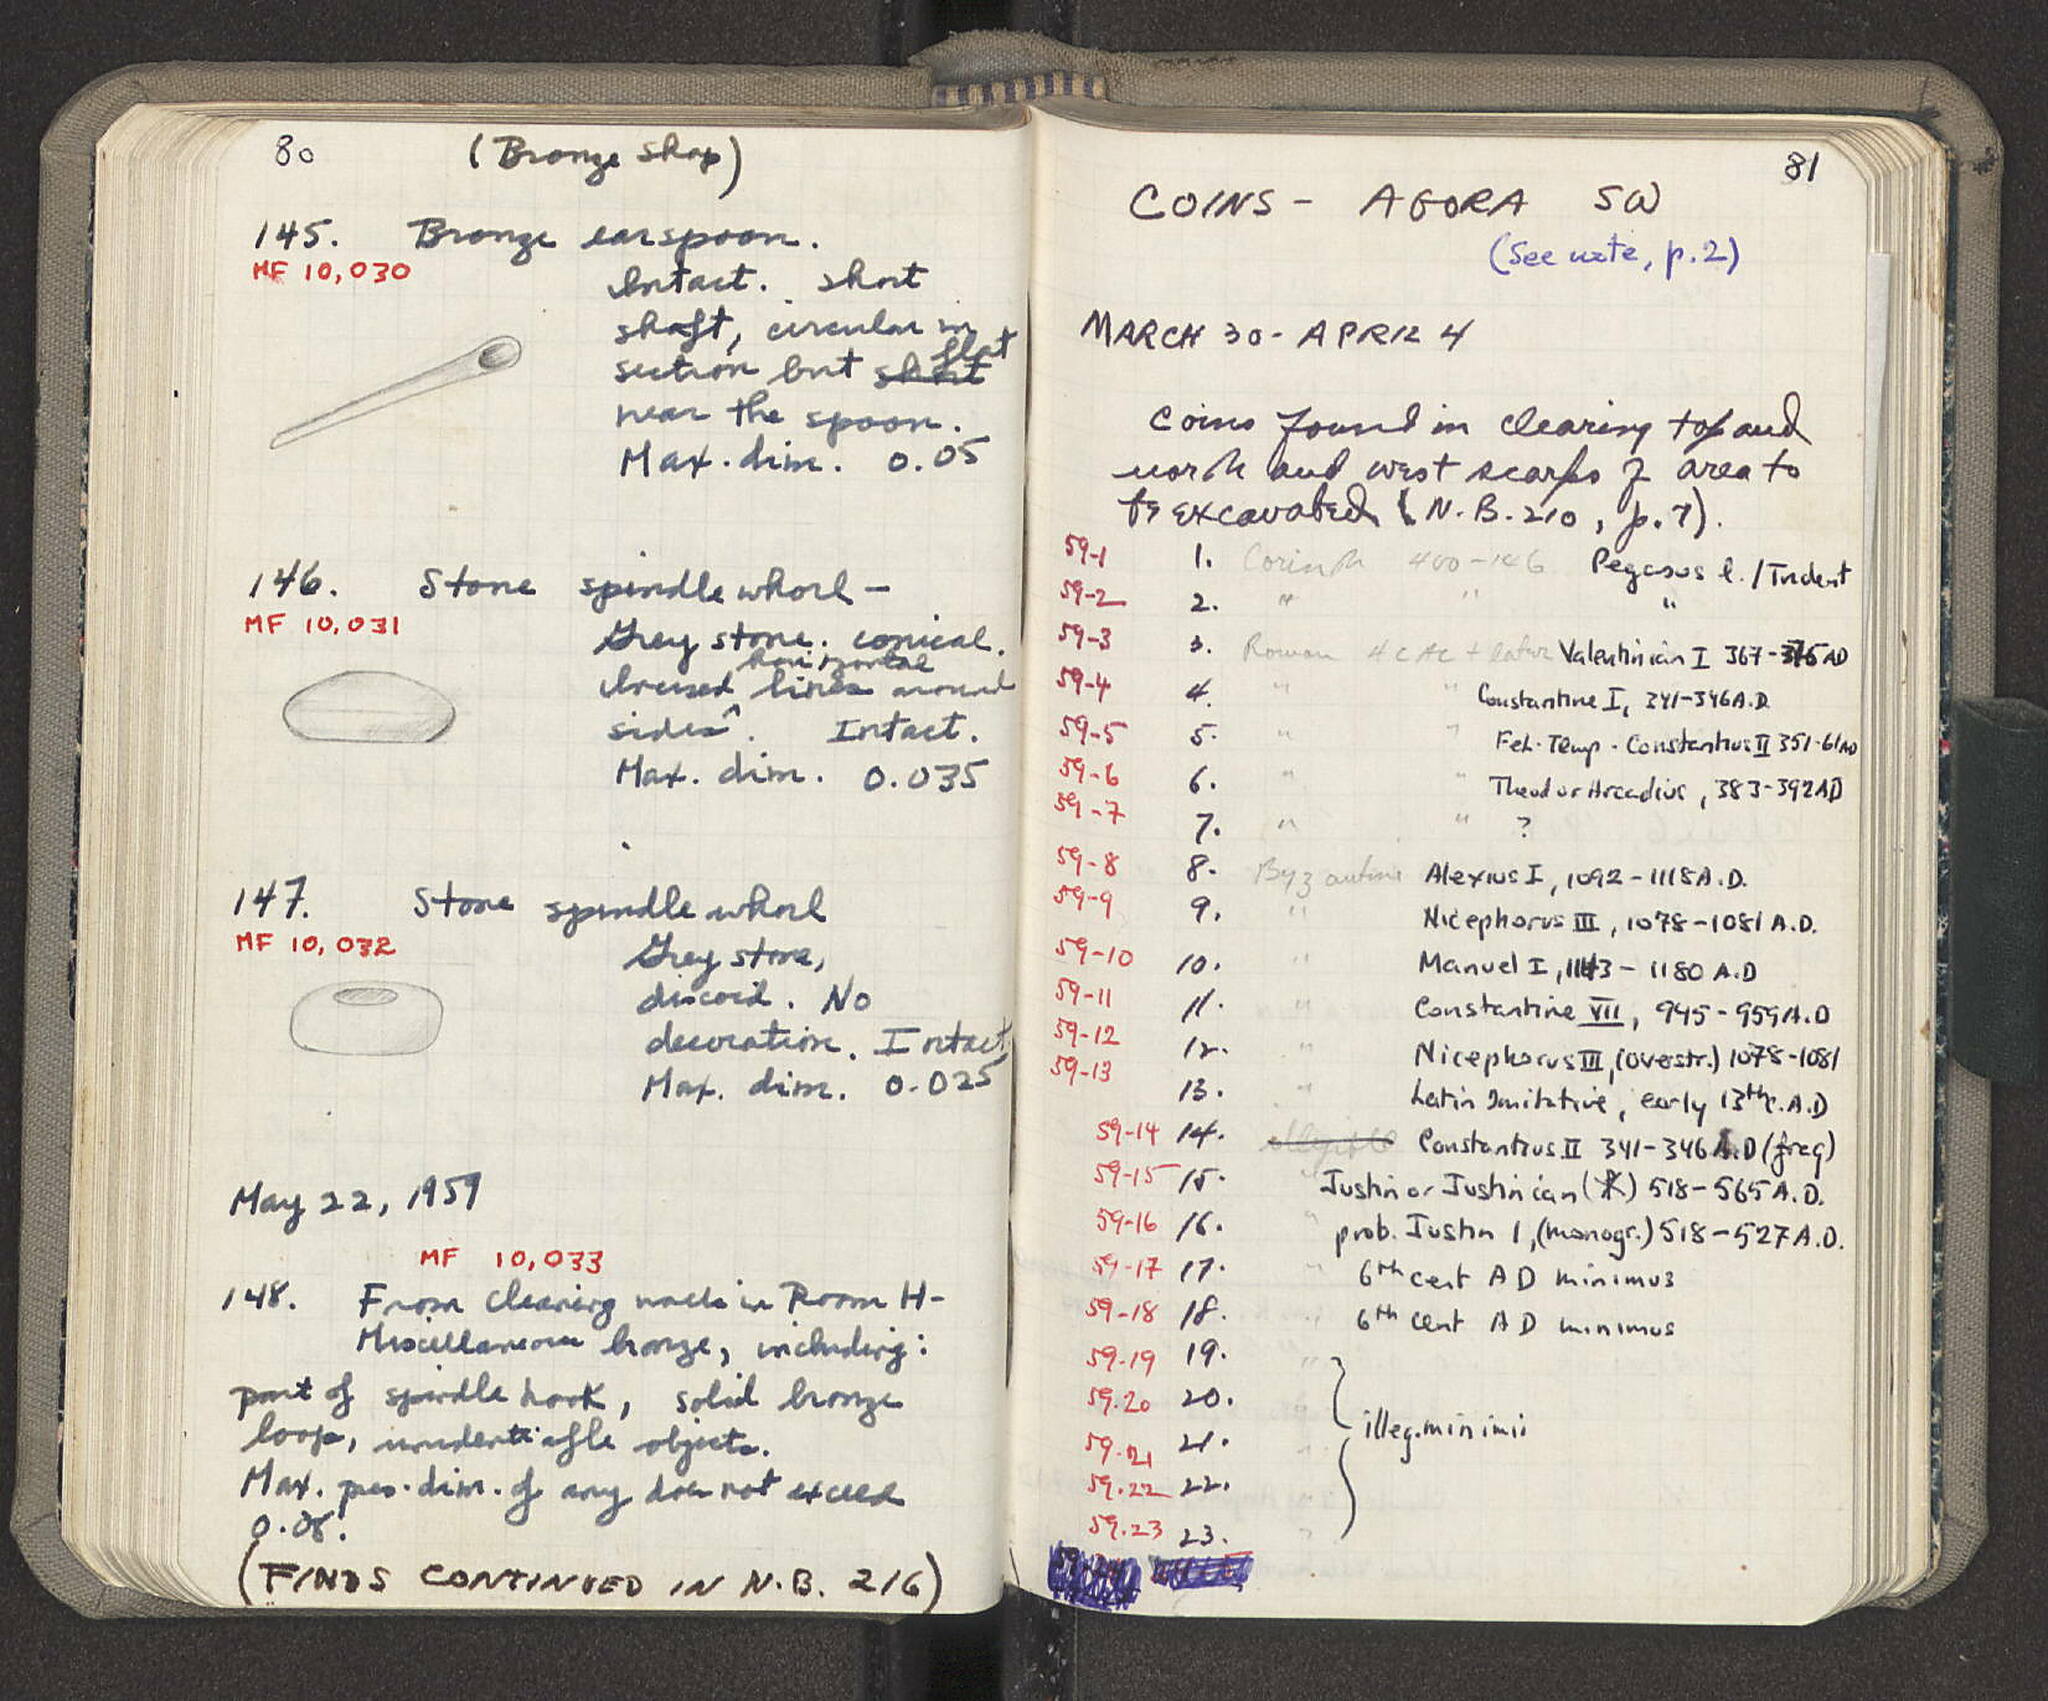 80 (Bronze Shop)
145. Bronze earspoon.
MF 10,030
Intact. Short
shaft, circular in
section but short flat
near the spoon.
Max. dim. 0.05
146. Stone spindle whorl —
MF 10,031
Grey stone. conical.
Incised horizontal lines around
sides. Intact.
Max. dim. 0.035
147. Stone spindle whorl
MF 10,032
Grey stone,
discoid. No
decoration. Intact.
Max. dim. 0.025
May 22, 1959
MF 10,033
148. From clearing walls in Room H-
Miscellaneous bronze, including:
part of spindle hook, solid bronze
loop, unidentifiable objects.
Max. pres. dim. of any does not exceed
0.08.
(FINDS CONTINUED IN N.B. 216)
81
COINS - AGORA SW
(See note, p.2)
MARCH 30 - APRIL 4
Coins found in clearing top and
north and west scarps of area to
be excavated (N.B. 210, p.7).
59-1 1. Corinth 400-146 Pegasus l. / Trident
59-2 2. " " "
59-3 3. Roman 4 c AC + later Valentinian I 367-375 AD
59-4 4. " " Constantine I, 341-346 A.D.
59-5 5. " " Fel. Temp. Constantius II 351-61 AD
59-6 6. " " Theod or Arcadius, 383-392 AD
59-7 7. " " ?
59-8 8. Byzantine Alexius I, 1092-1118 A.D.
59-9 9. " Nicephorus III, 1078-1081 A.D.
59-10 10. " Manuel I, 1143-1180 A.D
59-11 11. " Constantine VII, 945-959 A.D
59-12 12. " Nicephorus III, (overstr.) 1078-1081
59-13 13. " Latin Imitative, early 13th c. A.D
59-14 14. illegible Constantius II 341-346 A.D (frag)
59-15 15. " Justin or Justinian 518-565 A.D.
59-16 16. " prob. Justin I, (monogr.) 518-527 A.D.
59-17 17. " 6th cent AD minimus
59-18 18. " 6th cent AD minimus
59-19 19. "
59.20 20. "
illeg. minimii
59.21 21. "
59.22 22. "
59.23 23. "